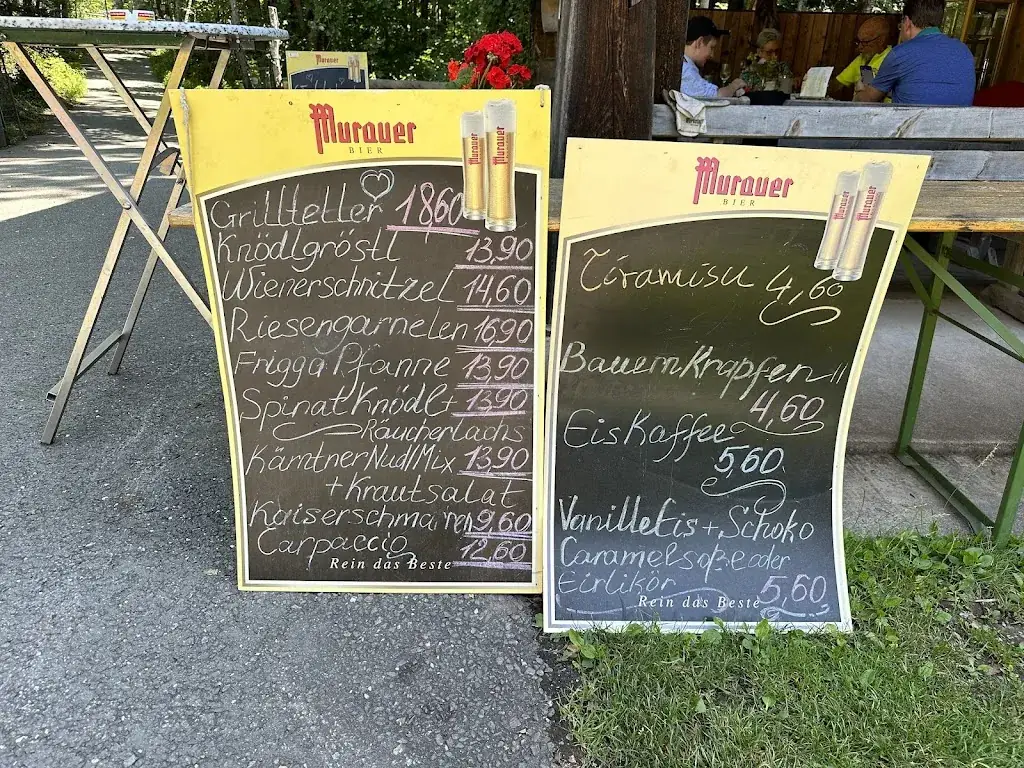 Murauer
Murauer
BIER
Murauer
Murauer
Grillteller 1860
Knödlgröstl 13,90
Wienerschnitzel 14,60
Riesengarnelen 16,90
Frigga Pfanne 13,90
Spinatknödl + 13,90
Räucherlachs
Kärntner Nudl Mix 13,90
+ Krautsalat
Kaiserschmarren 9,60
Carpaccio 12,60
Rein das Beste
Murauer
BIER
Murauer
Murauer
Tiramisu 4,60
Bauern Krapfen
4,60
Eis Kaffee
5,60
Vanille Eis + Schoko
Caramelsoße oder
Eirlikör 5,60
Rein das Beste